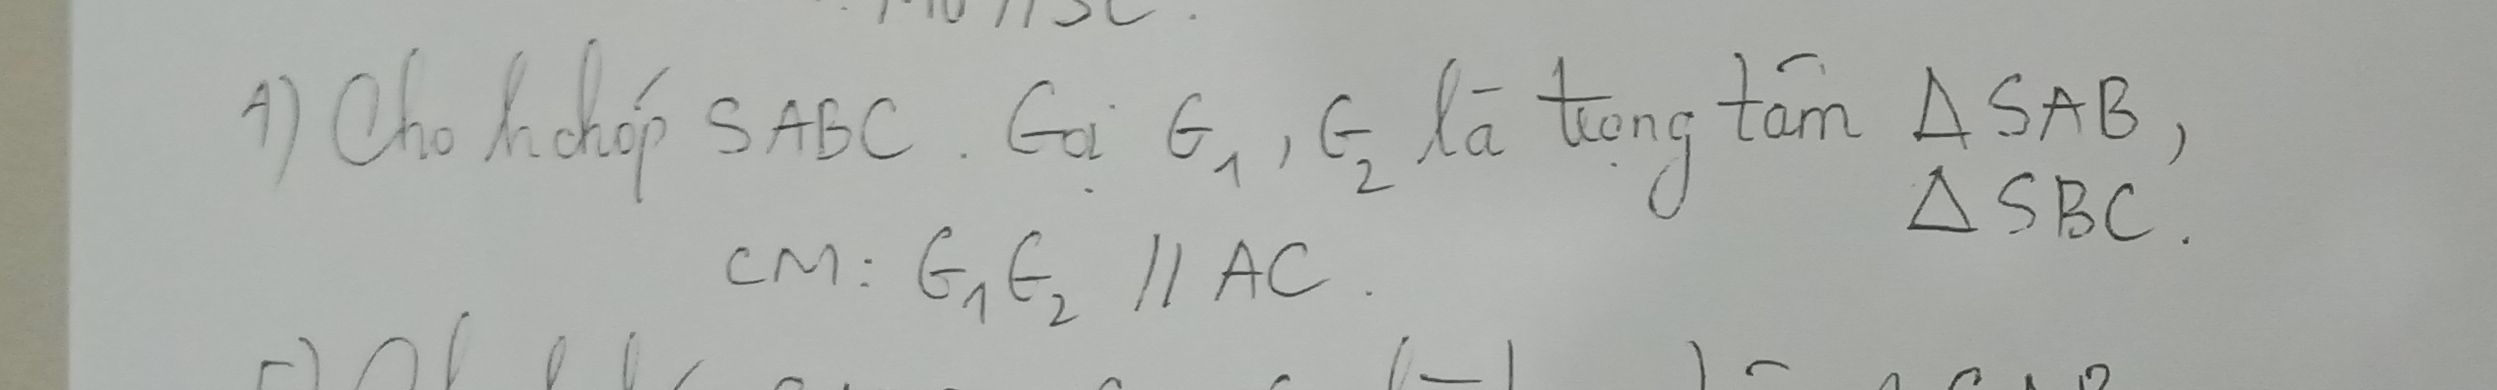 4) Cho h chóp SABC. Gọi G₁, G₂ là trọng tâm △SAB,
△SBC.
CM: G₁G₂ // AC.